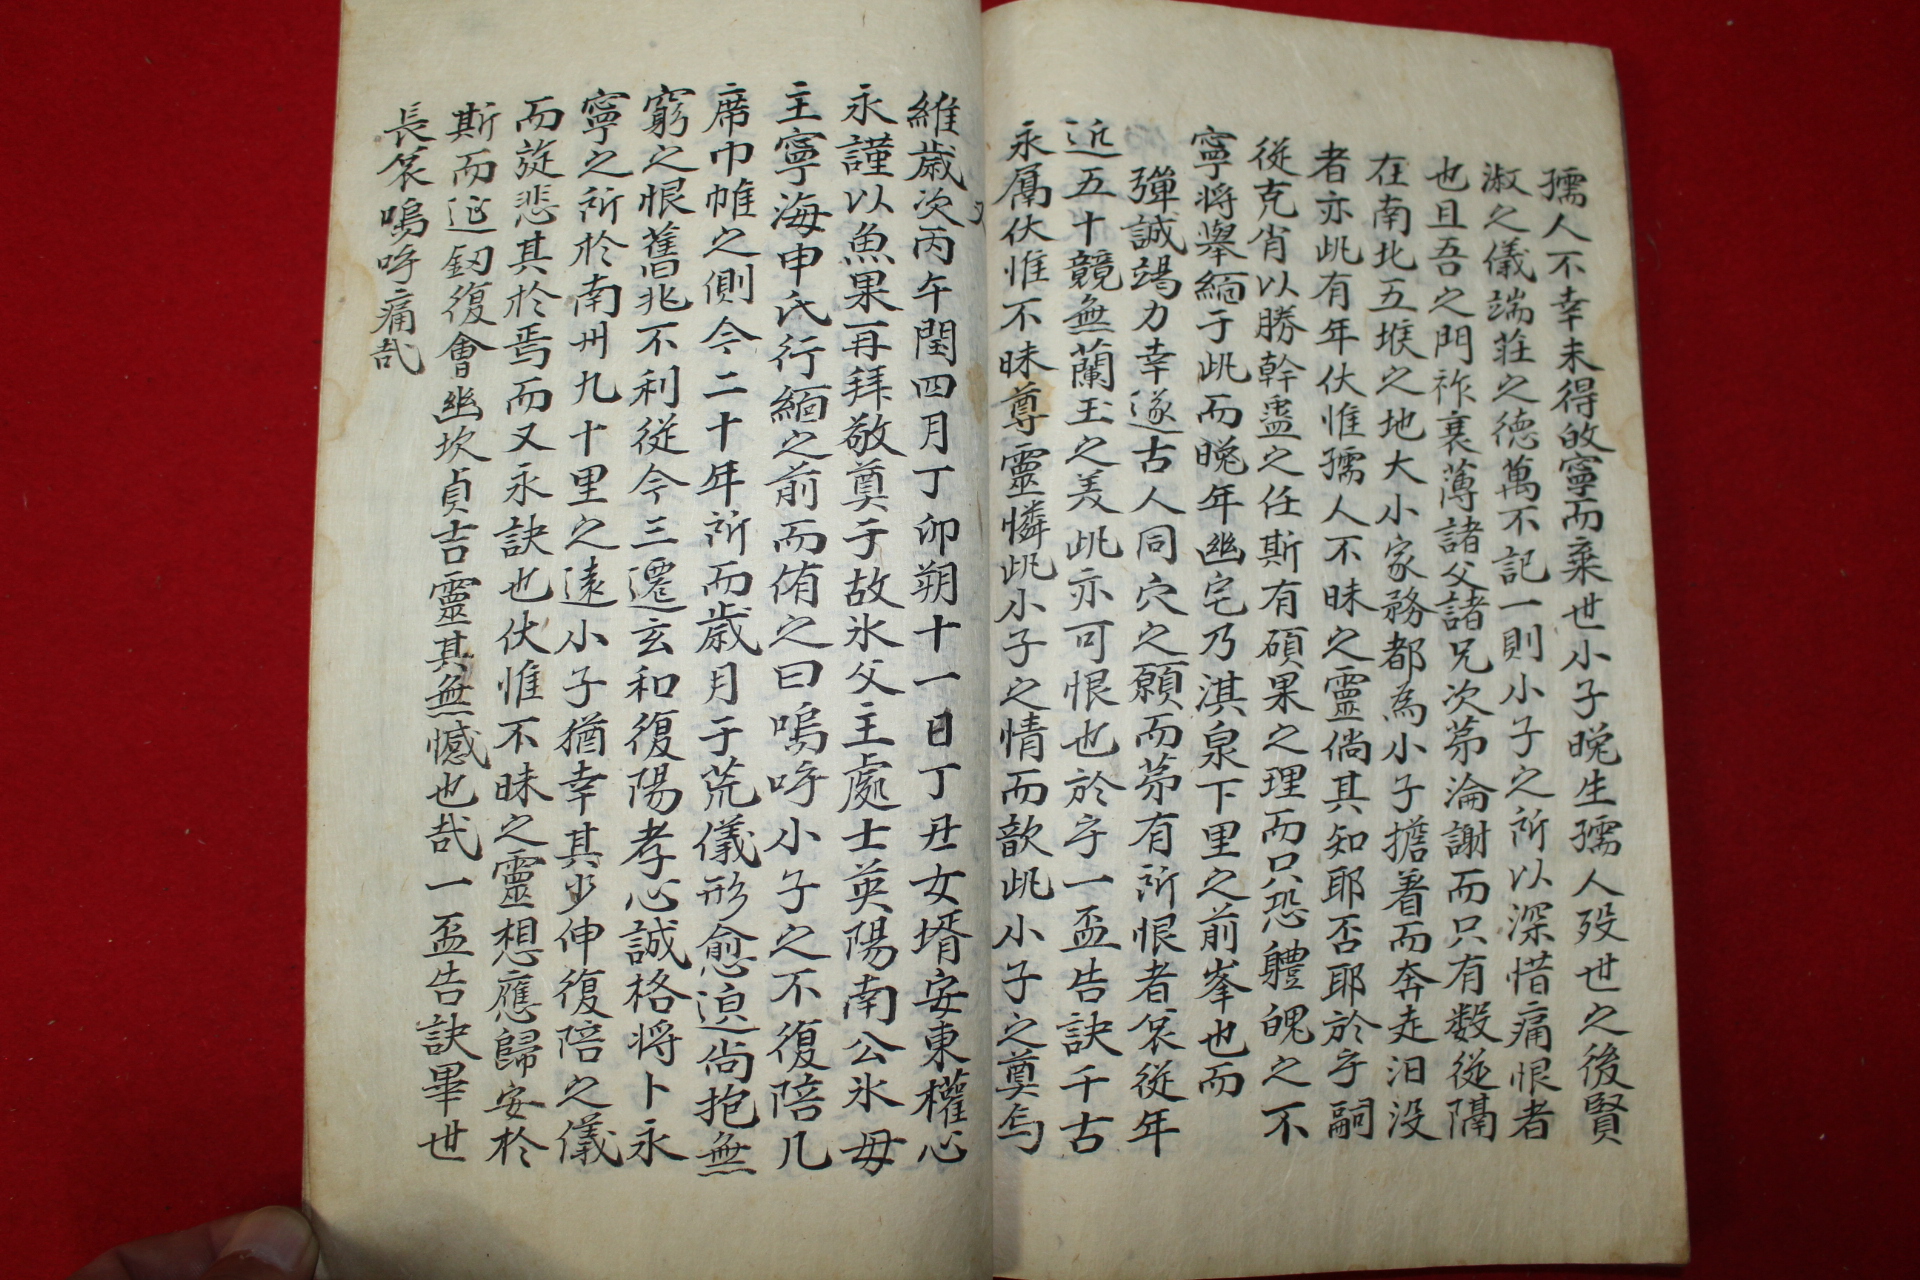 孺人不幸未得故寧而棄世小子晩生孺人歿世之後賢
淑之儀端莊之德萬不記一則小子之所以深惜痛恨者
也且吾之門祚衰薄諸父諸兄次第淪謝而只有数從隔
在南北五堠之地大小家務都為小子擔着而奔走汨没
者亦此有年伏惟孺人不昧之靈倘其知耶否耶於乎嗣
從克肖以勝幹蠱之任斯有碩果之理而只恐軆魄之不
寧将擧緬于此而晩年幽宅乃淇泉下里之前峯也而
殫誠竭力幸遂古人同穴之願而第有所恨者哀從年
近五十競無蘭玉之美此亦可恨也於乎一盃告訣千古
永属伏惟不昧尊靈憐此小子之情而歆此小子之奠焉
維歲次丙午閏四月丁卯朔十一日丁丑女壻安東權心
永謹以魚果再拜敬奠于故氷父主處士英陽南公氷母
主寧海申氏行緬之前而侑之曰嗚呼小子之不復陪几
席巾帷之側今二十年所而歲月于荒儀形愈迫尙抱無
窮之恨舊兆不利從今三遷玄和復陽孝心誠格将卜永
寧之所於南州九十里之遠小子猶幸其少伸復陪之儀
而旋悲其於焉而又永訣也伏惟不昧之靈想應歸安於
斯而延釰復會幽坎貞吉靈其無憾也哉一盃告訣畢世
長哀嗚呼痛哉